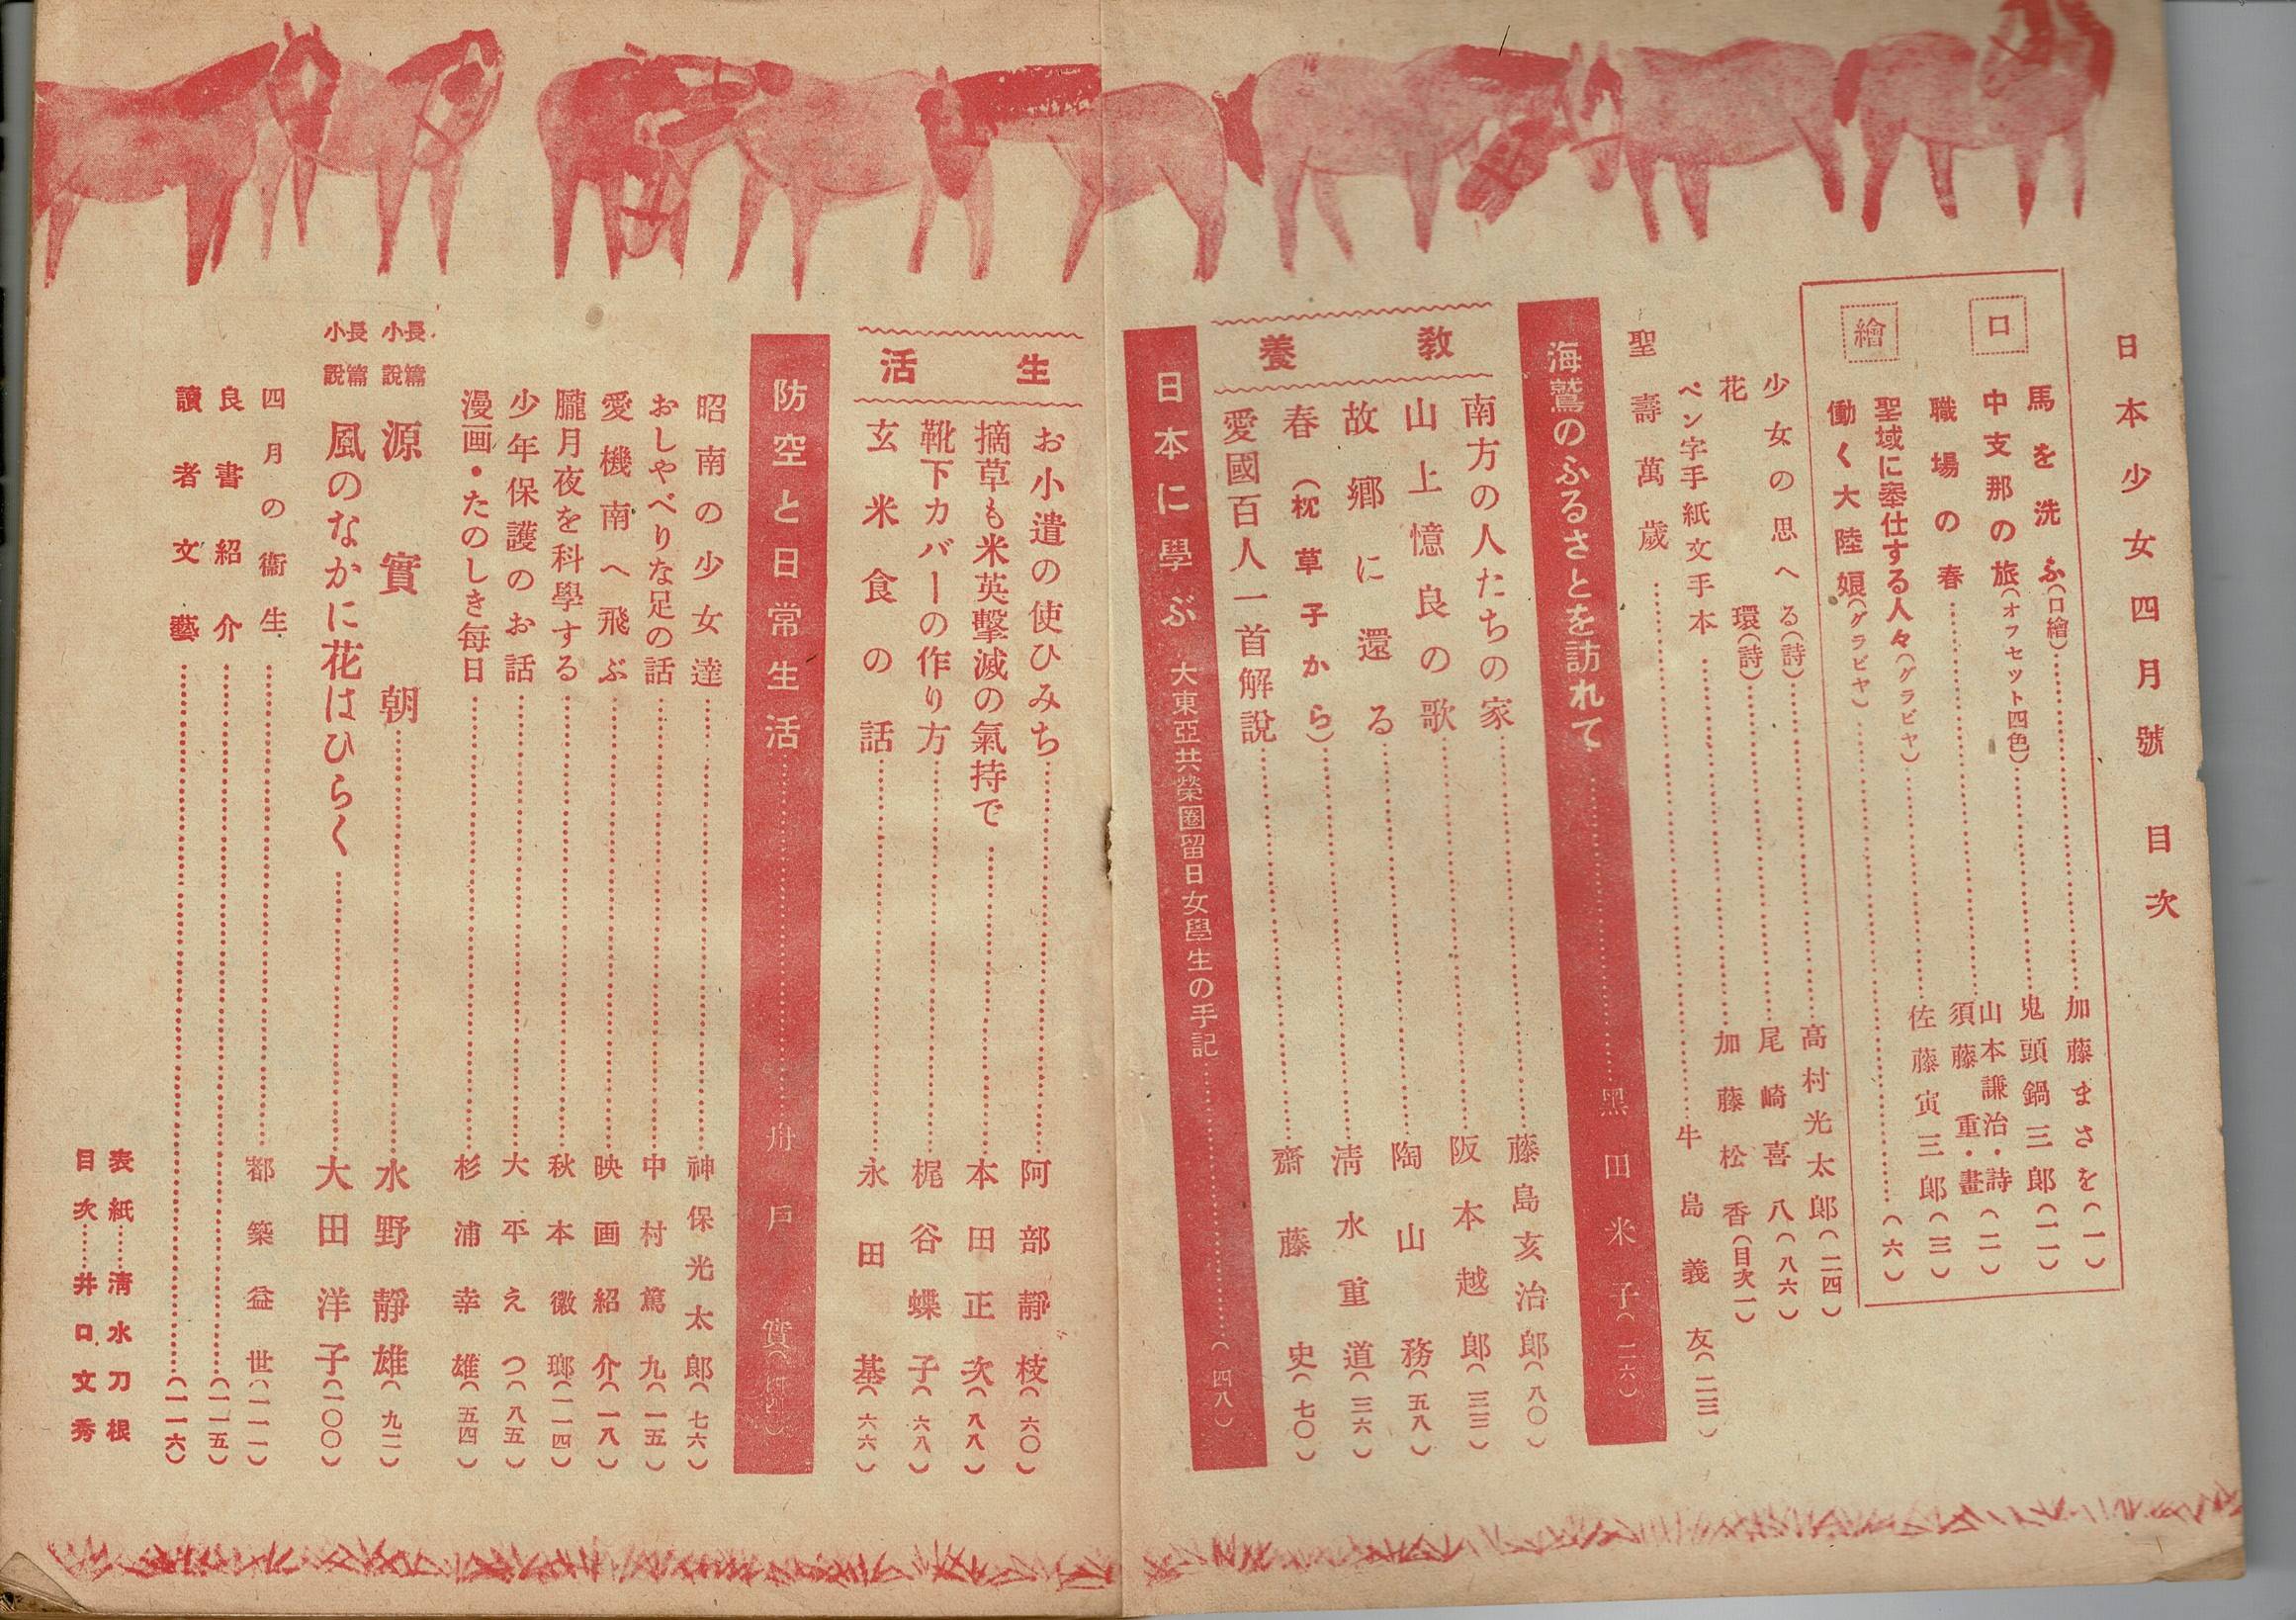 日本少女四月號 目次
口繪
馬を洗ふ(口繪)……加藤まさを(一)
中支那の旅(オフセット四色)……鬼頭鍋三郎(一)
職場の春……山本謙治・詩 須藤重・畫(二)
聖域に奉仕する人々(グラビヤ)……佐藤寅三郎(三)
働く大陸娘(グラビヤ)……(六)
少女の思へる(詩)……高村光太郎(二四)
花環(詩)……尾崎喜八(八六)
ペン字手紙文手本……加藤松香(目次一)
聖壽萬歲……牛島義友(二三)
海鷲のふるさとを訪れて……黑田米子(二六)
教養
南方の人たちの家……藤島亥治郎(八〇)
山上憶良の歌……阪本越郎(三三)
故鄕に還る……陶山務(五八)
春(枕草子から)……淸水重道(三六)
愛國百人一首解說……齋藤史(七〇)
日本に學ぶ 大東亞共榮圈留日女學生の手記……(四八)
生活
お小遣の使ひみち……阿部靜枝(六〇)
摘草も米英擊滅の氣持で……本田正次(八八)
靴下カバーの作り方……梶谷蝶子(六八)
玄米食の話……永田基(六六)
防空と日常生活……舟戶實
昭南の少女達……神保光太郎(七六)
おしやべりな足の話……中村篤九(一五)
愛機南へ飛ぶ……映画紹介(一八)
朧月夜を科學する……秋本徽瑯(二四)
少年保護のお話……大平えつ(八五)
漫画・たのしき每日……杉浦幸雄(五四)
長篇小說 源實朝……水野靜雄(九二)
長篇小說 風のなかに花はひらく……大田洋子(一〇〇)
四月の衞生……都築益世(一一一)
良書紹介……(一一五)
讀者文藝……(一一六)
表紙……淸水刀根
目次……井口文秀